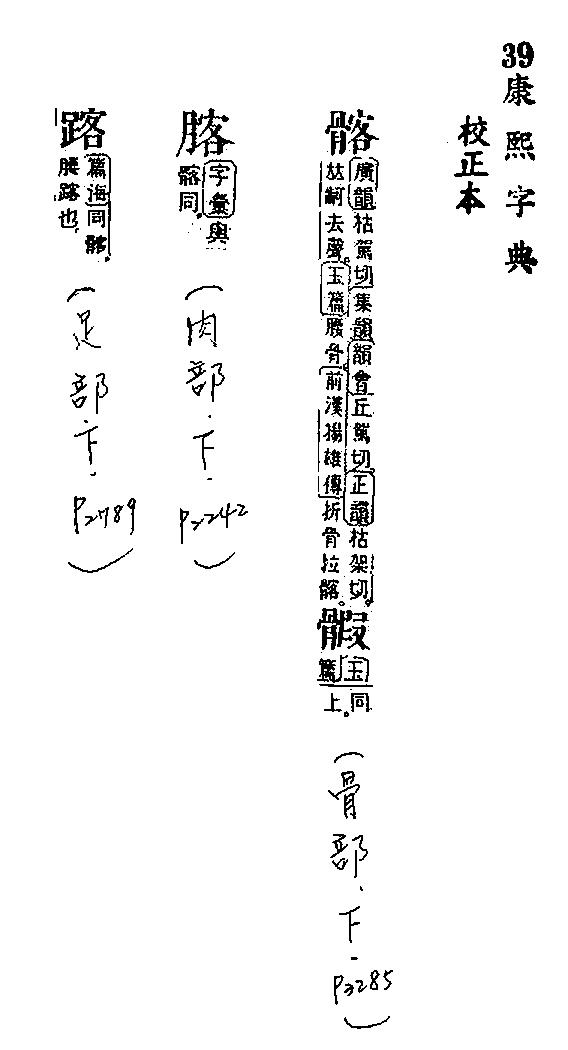 39康熙字典
校正本
髂
廣韻枯駕切集韻韻會丘駕切。正韻枯架切。
𠀤軻去聲。玉篇腰骨。前漢揚雄傳折骨拉髂。
玉篇同
上。
(骨部.下-P3285)
字彙與
髂同。
(肉部.下-P2242)
篇海同髂。
腰也
(足部.下-P2789)